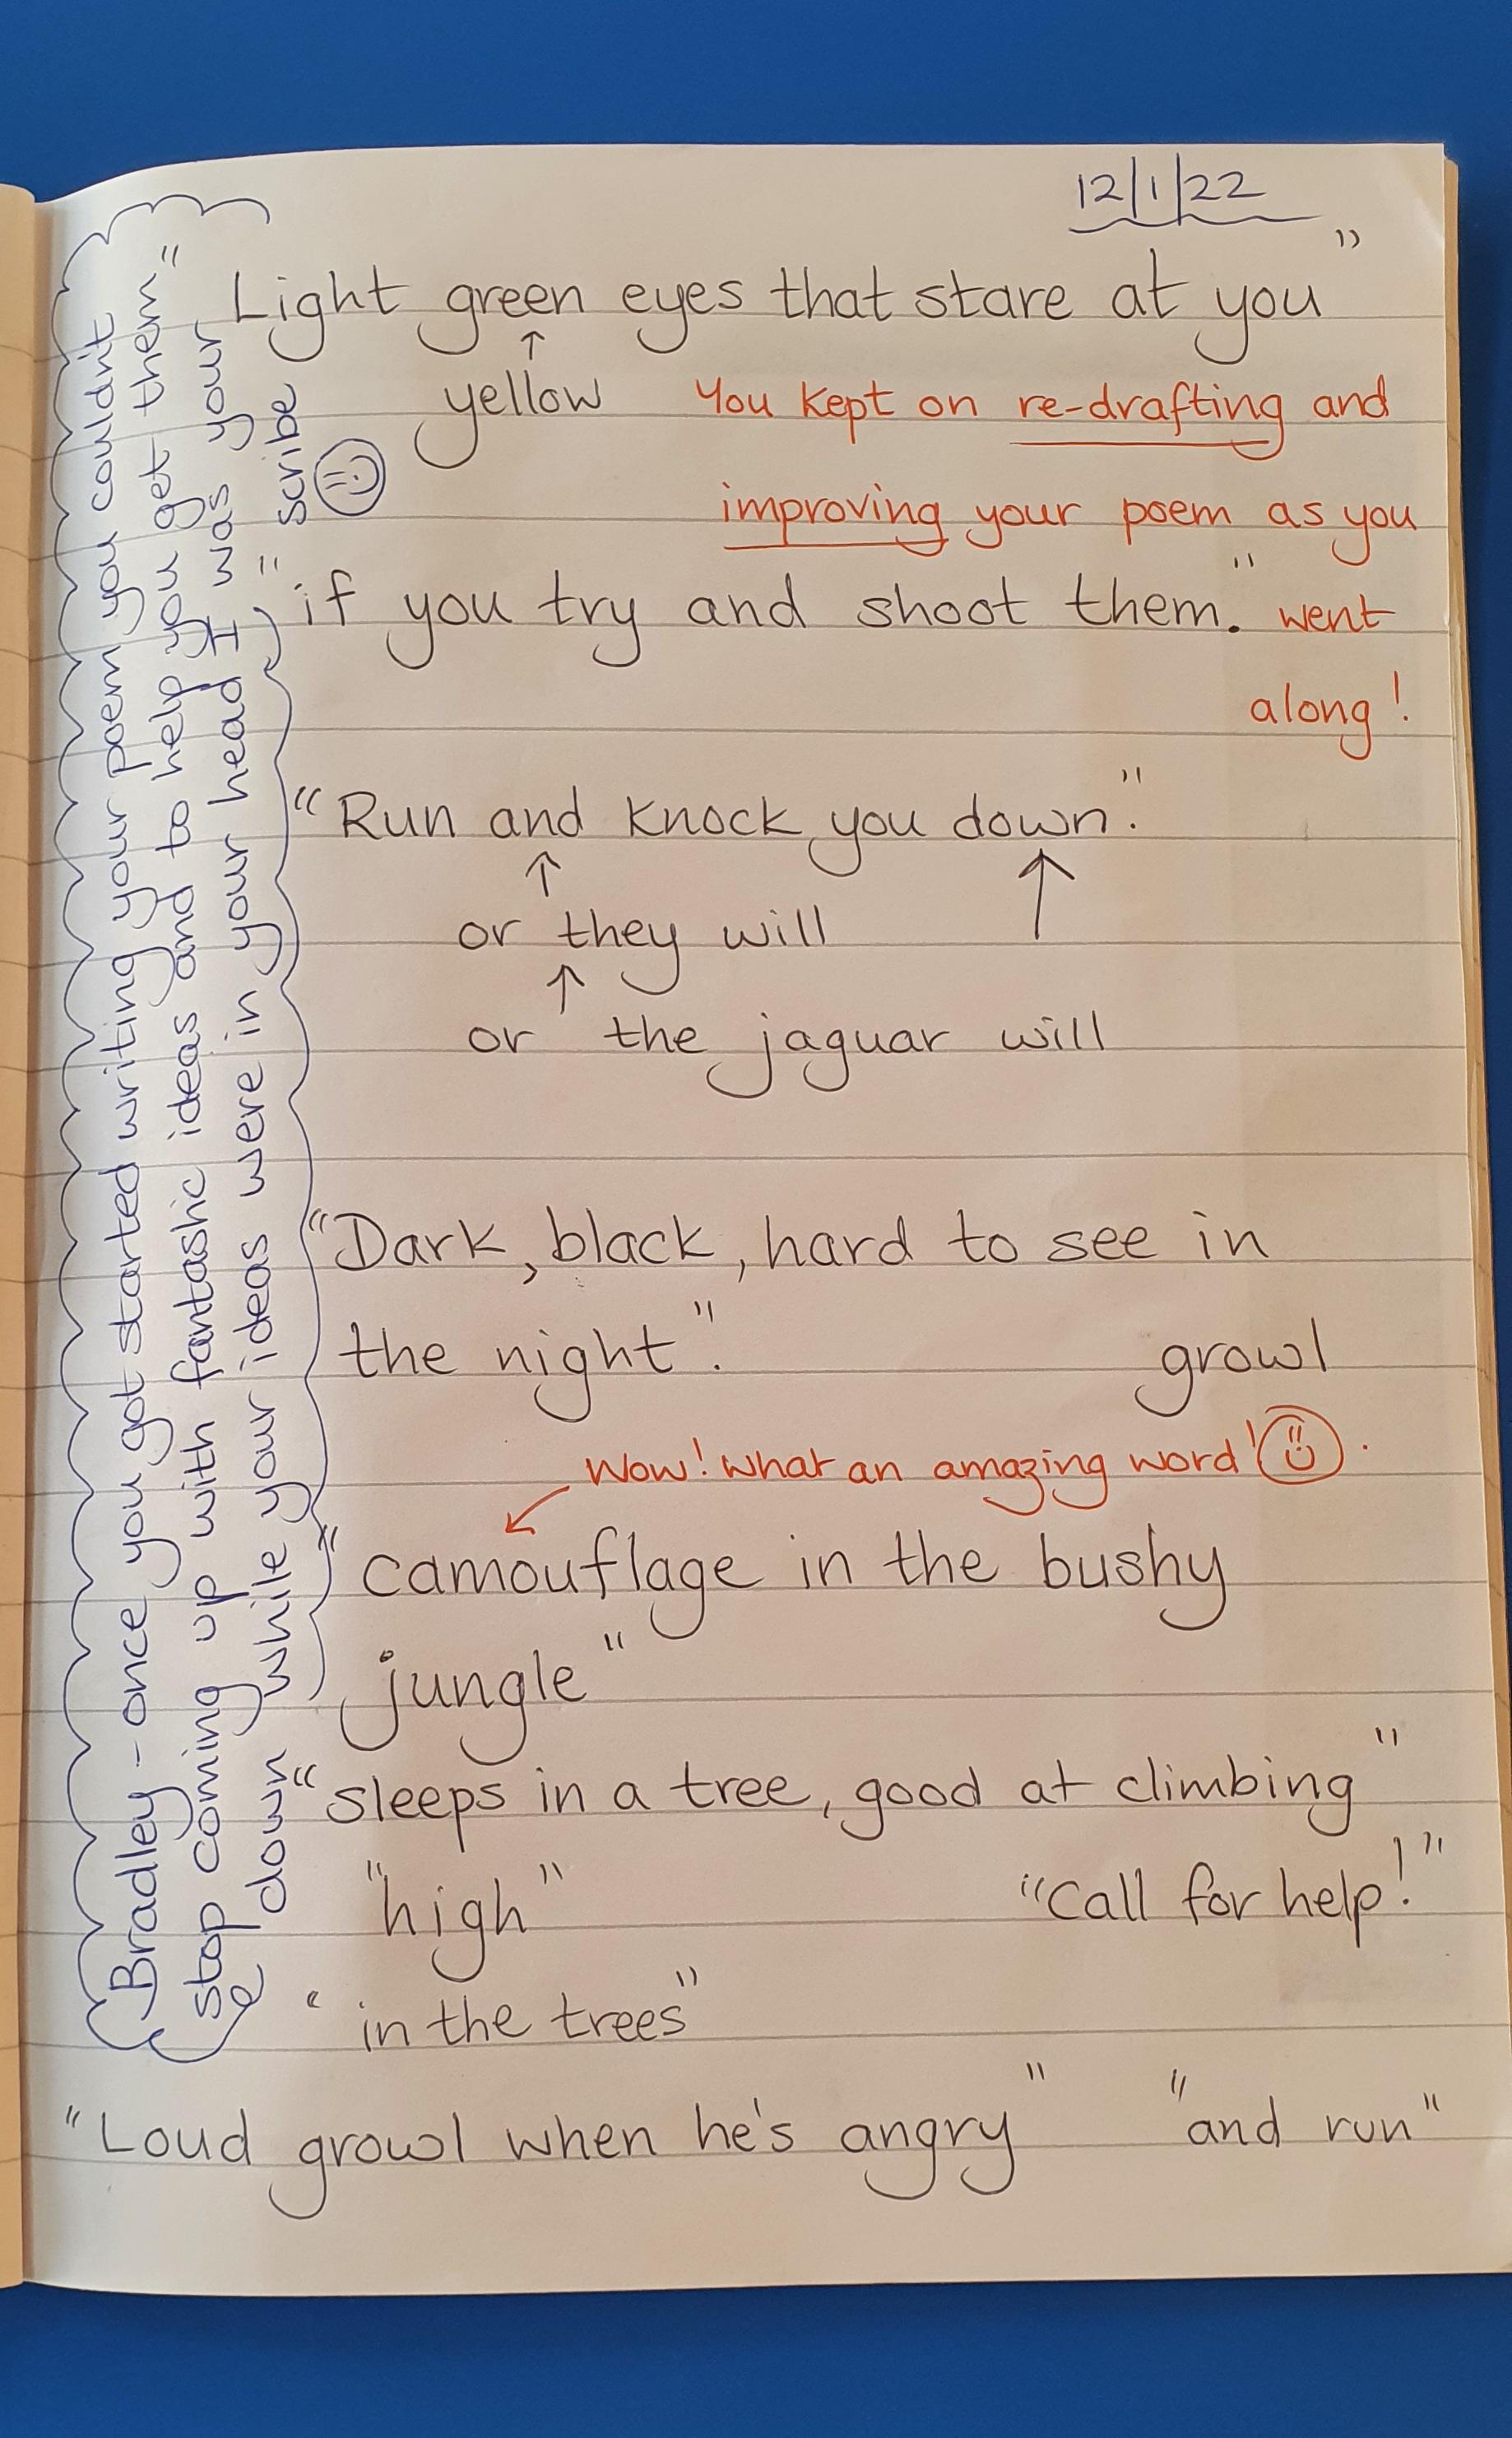 12/1/22
Light green eyes that stare at you"
↑
yellow
You kept on re-drafting and
improving your poem as you
went
along!
"if you try and shoot them."
"Run and knock you down."
↑ ↑
or they will
↑
or the jaguar will
"Dark, black, hard to see in
the night".
growl
Wow! What an amazing word!
"camouflage in the bushy
jungle"
"sleeps in a tree, good at climbing"
"high" "Call for help!"
"in the trees"
"Loud growl when he's angry" "and run"
Bradley - once you got started writing your poem you couldn't
stop coming up with fantastic ideas and to help you get them"
down while your ideas were in your head I was your
" scribe